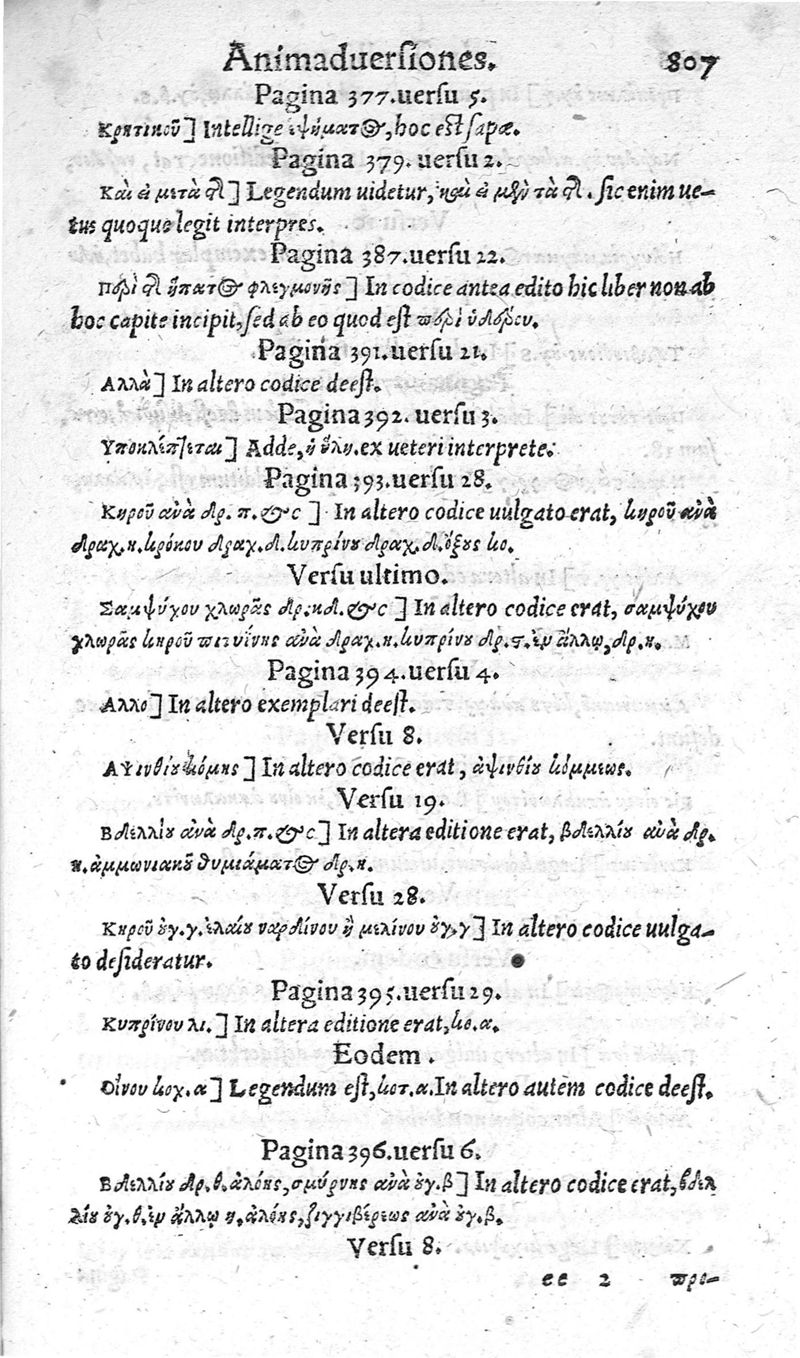 Animaduersiones. 807
Pagina 377. uersu 5.
Κρητικοῦ] Intellige ἑψήματος, hoc est sapæ.
Pagina 379. uersu 2.
Καὶ εἰ μετὰ δὲ] Legendum uidetur, καὶ εἰ μὲν τὰ δὲ. sic enim ue-
tus quoque legit interpres.
Pagina 387. uersu 22.
Περὶ δὲ ἥπατος φλεγμονῆς] In codice antea edito hic liber non ab
hoc capite incipit, sed ab eo quod est περὶ ὑδέρου.
Pagina 391. uersu 21.
Αλλὰ] In altero codice deest.
Pagina 392. uersu 3.
Υποκλέπτεται] Adde, ἡ ὕλη. ex ueteri interprete.
Pagina 393. uersu 28.
Κηροῦ ἀνὰ δρ. π. &c] In altero codice uulgato erat, κηροῦ ἀνὰ
δραχ. η. κρόκου δραχ. δ. κυπρίνου δραχ. δ. ὄξους κο.
Versu ultimo.
Σαμψύχου χλωρᾶς δρ. κδ. &c] In altero codice erat, σαμψύχου
χλωρᾶς κηροῦ πιτυΐνης ἀνὰ δραχ. η. κυπρίνου δρ. ϛ. ἐν ἄλλῳ, δρ. η.
Pagina 394. uersu 4.
Αλλο] In altero exemplari deest.
Versu 8.
Αψινθίου κόμης] In altero codice erat, ἀψινθίου κόμμεως.
Versu 19.
Βδελλίου ἀνὰ δρ. π. &c] In altera editione erat, βδελλίου ἀνὰ δρ.
η. ἀμμωνιακοῦ θυμιάματος δρ. η.
Versu 28.
Κηροῦ ὀγ. γ. ἐλαίου ναρδίνου ἢ μηλίνου ὀγ. γ] In altero codice uulga-
to desideratur.
Pagina 395. uersu 29.
Κυπρίνου λι.] In altera editione erat, κο. α.
Eodem.
Οἴνου κοχ. α] Legendum est, κοτ. α. In altero autem codice deest.
Pagina 396. uersu 6.
Βδελλίου δρ. θ. ἀλόης, σμύρνης ἀνὰ ὀγ. β] In altero codice erat, βδελ
λίου ὀγ. θ. ἐν ἄλλῳ η. ἀλόης, ζιγγιβέρεως ἀνὰ ὀγ. β.
Versu 8.
ee 2 προ-